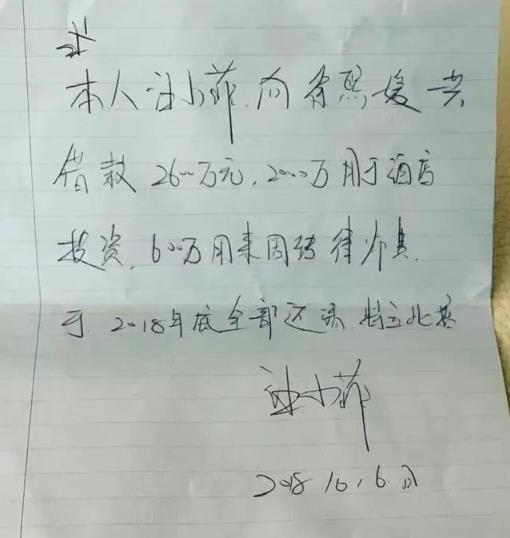 本人汪小菲,向徐熙媛共
借款2600万元,2000万用于酒店
投资,600万用来周转
于2018年底全部还清.特立此据
汪小菲
2018 10,6.日